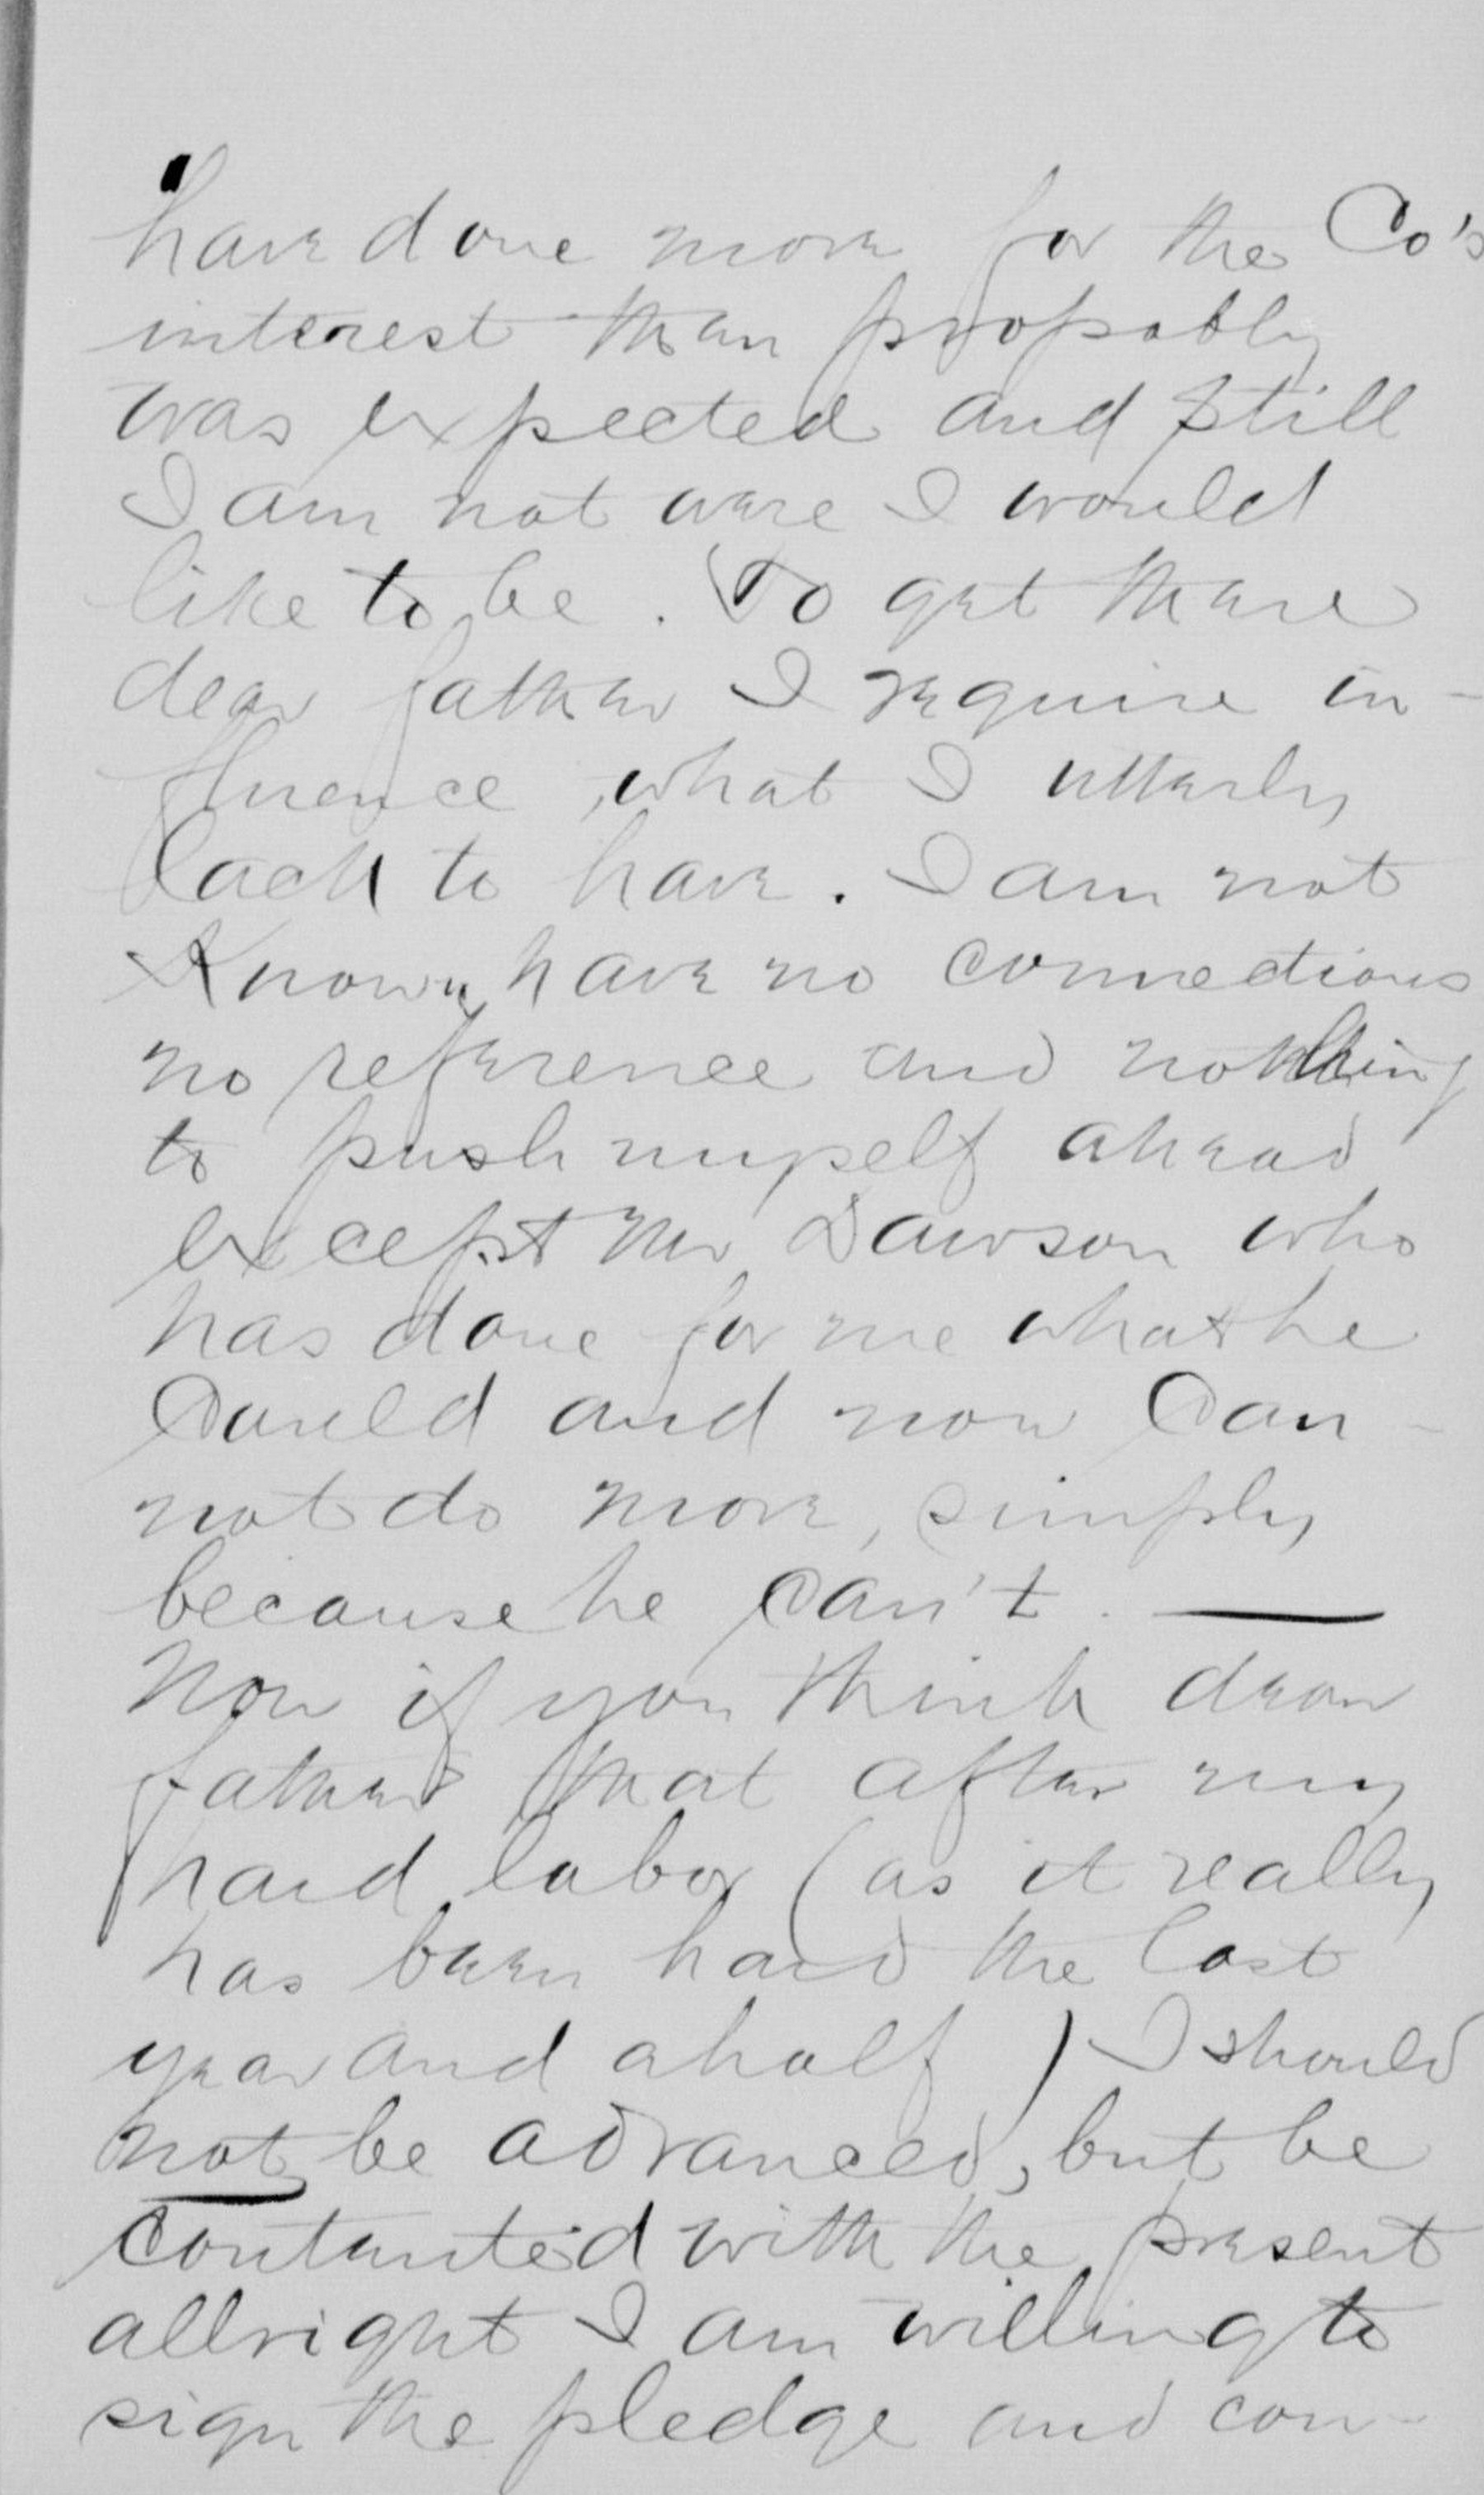 have done more for the Co's
interest than propably
was expected and still
I am not were I would
like to be. To get there
dear father I require in-
fluence, what I utterly
lack to have. I am not
Known, have no connections
no reference and nothing
to push myself ahead
except Mr Dawson who
has done for me what he
Could and now Can-
not do more, simply
because he Can't. —
Now if you think dear
father that after my
hard labor (as it really
has been hard the last
year and a half) I should
not be advanced, but be
contented with the present
allright I am willing to
sign the pledge and con-